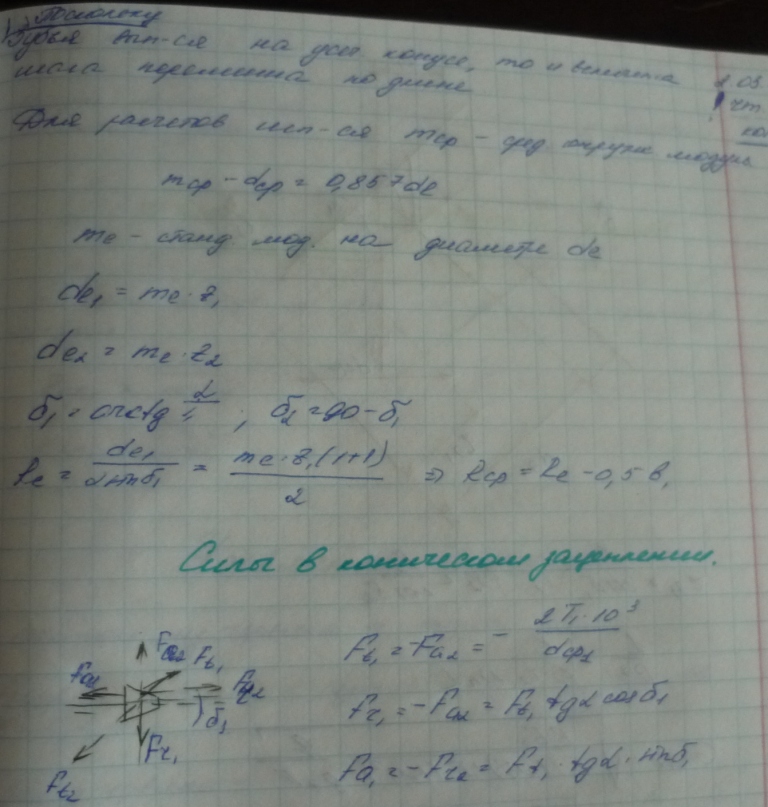 1) Поскольку
Зубья вып-ся на усеч конусе, то и величина
шага переменна по длине
Для расчетов исп-ся mср - сред. окружн модуль
mср - dср = 0,857de
me - станд мод. на диаметре de
de₁ = me · z₁
de₂ = me · z₂
δ₁ = arctg ; δ₂ = 90 - δ₁
Re = de₁ / 2sinδ₁ = me · z₁ (1+1) / 2 ⇒ Rср = Re - 0,5 b,
Силы в коническом зацеплении.
Fa₂ Ft₁
Fa₁ Fr₂
δ₁
Fr₁
Ft₂
Ft₁ = -Fa₂ = - 2T₁ · 10³ / dср₁
Fr₁ = -Fa₂ = Ft₁ tgα cosδ₁
Fa₁ = -Fr₂ = Ft₁ · tgα · sinδ₁